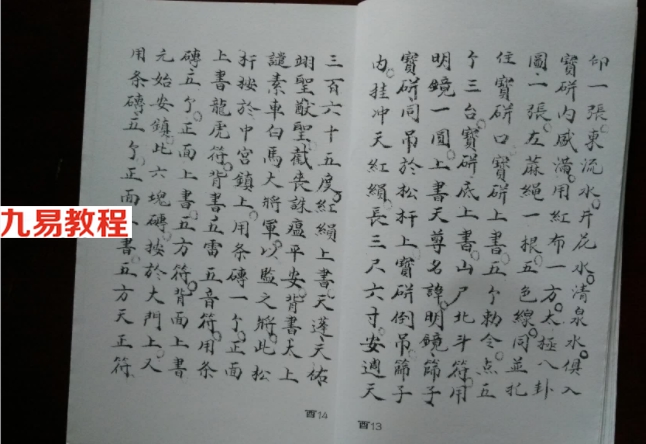 一張。東流水。井花水。清泉水。俱入
寶缾内盛滿。用紅布一方。太極八卦
圖一張。左蔴繩一根。五色線。同並扎
住寶缾口。寶缾上書五个勅令。点五
个三台。寶缾底上書山尸北斗符。用
明鏡一圓。上書天尊名諱。明鏡篩子
寶缾同吊於松杆上。寶缾倒吊篩子
内。挂冲天紅絹長三尺六寸。安週天
酉13
三百六十五度。紅絹上書天蓬天佑
翊聖猷聖。截喪誅瘟平安。背書太上
譴素車白馬大將軍。以監之。將此松
杆按於中宮鎮上。用条磚一个。正面
上書龍虎符。背書五雷五音符。用条
磚五个。正面上書五方符。背面上書
元始安鎮。此六塊磚按於大門上。又
用条磚五个。正面書五方天正符
酉14
九易教程